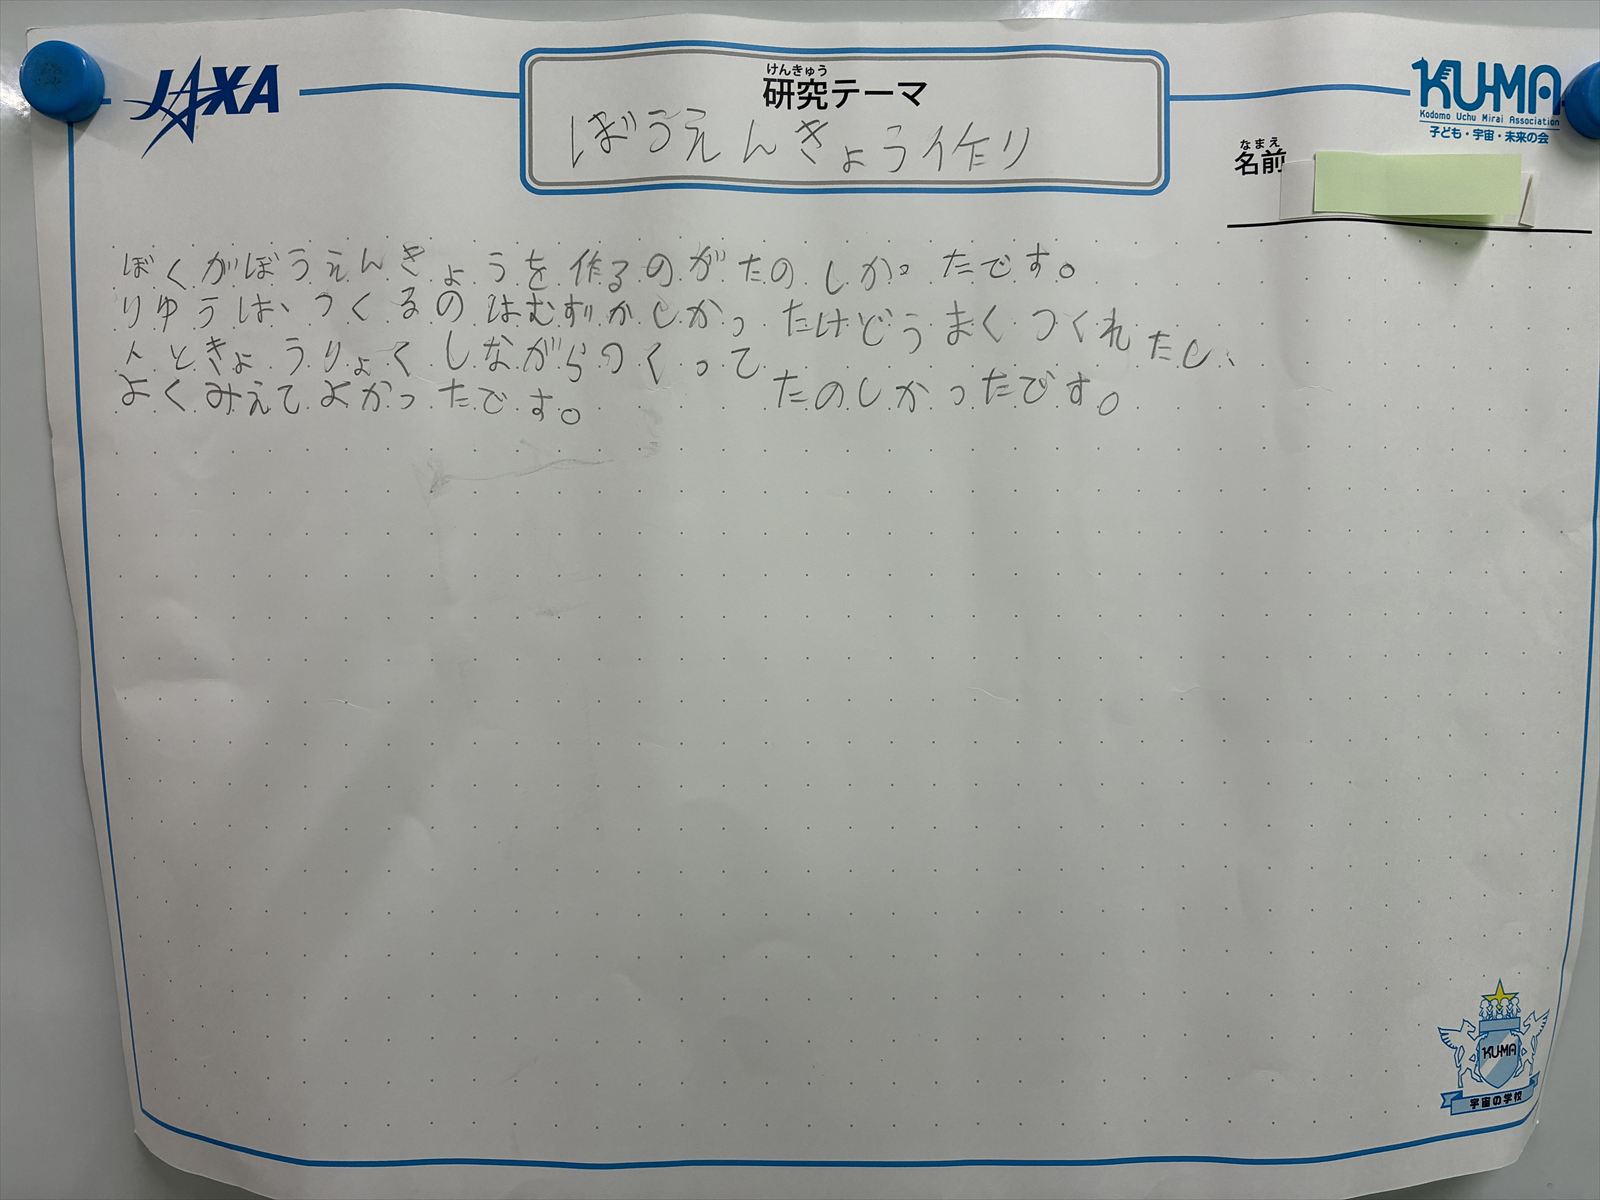 JAXA
けんきゅう
研究テーマ
ぼうえんきょう作り
KU-MA
Kodomo Uchu Mirai Association
子ども・宇宙・未来の会
なまえ
名前
ぼくがぼうえんきょうを作るのがたのしかったです。
りゆうは、つくるのはむずかしかったけどうまくつくれたし、
人ときょうりょくしながらつくって
よくみえてよかったです。 たのしかったです。
KU-MA
宇宙の学校